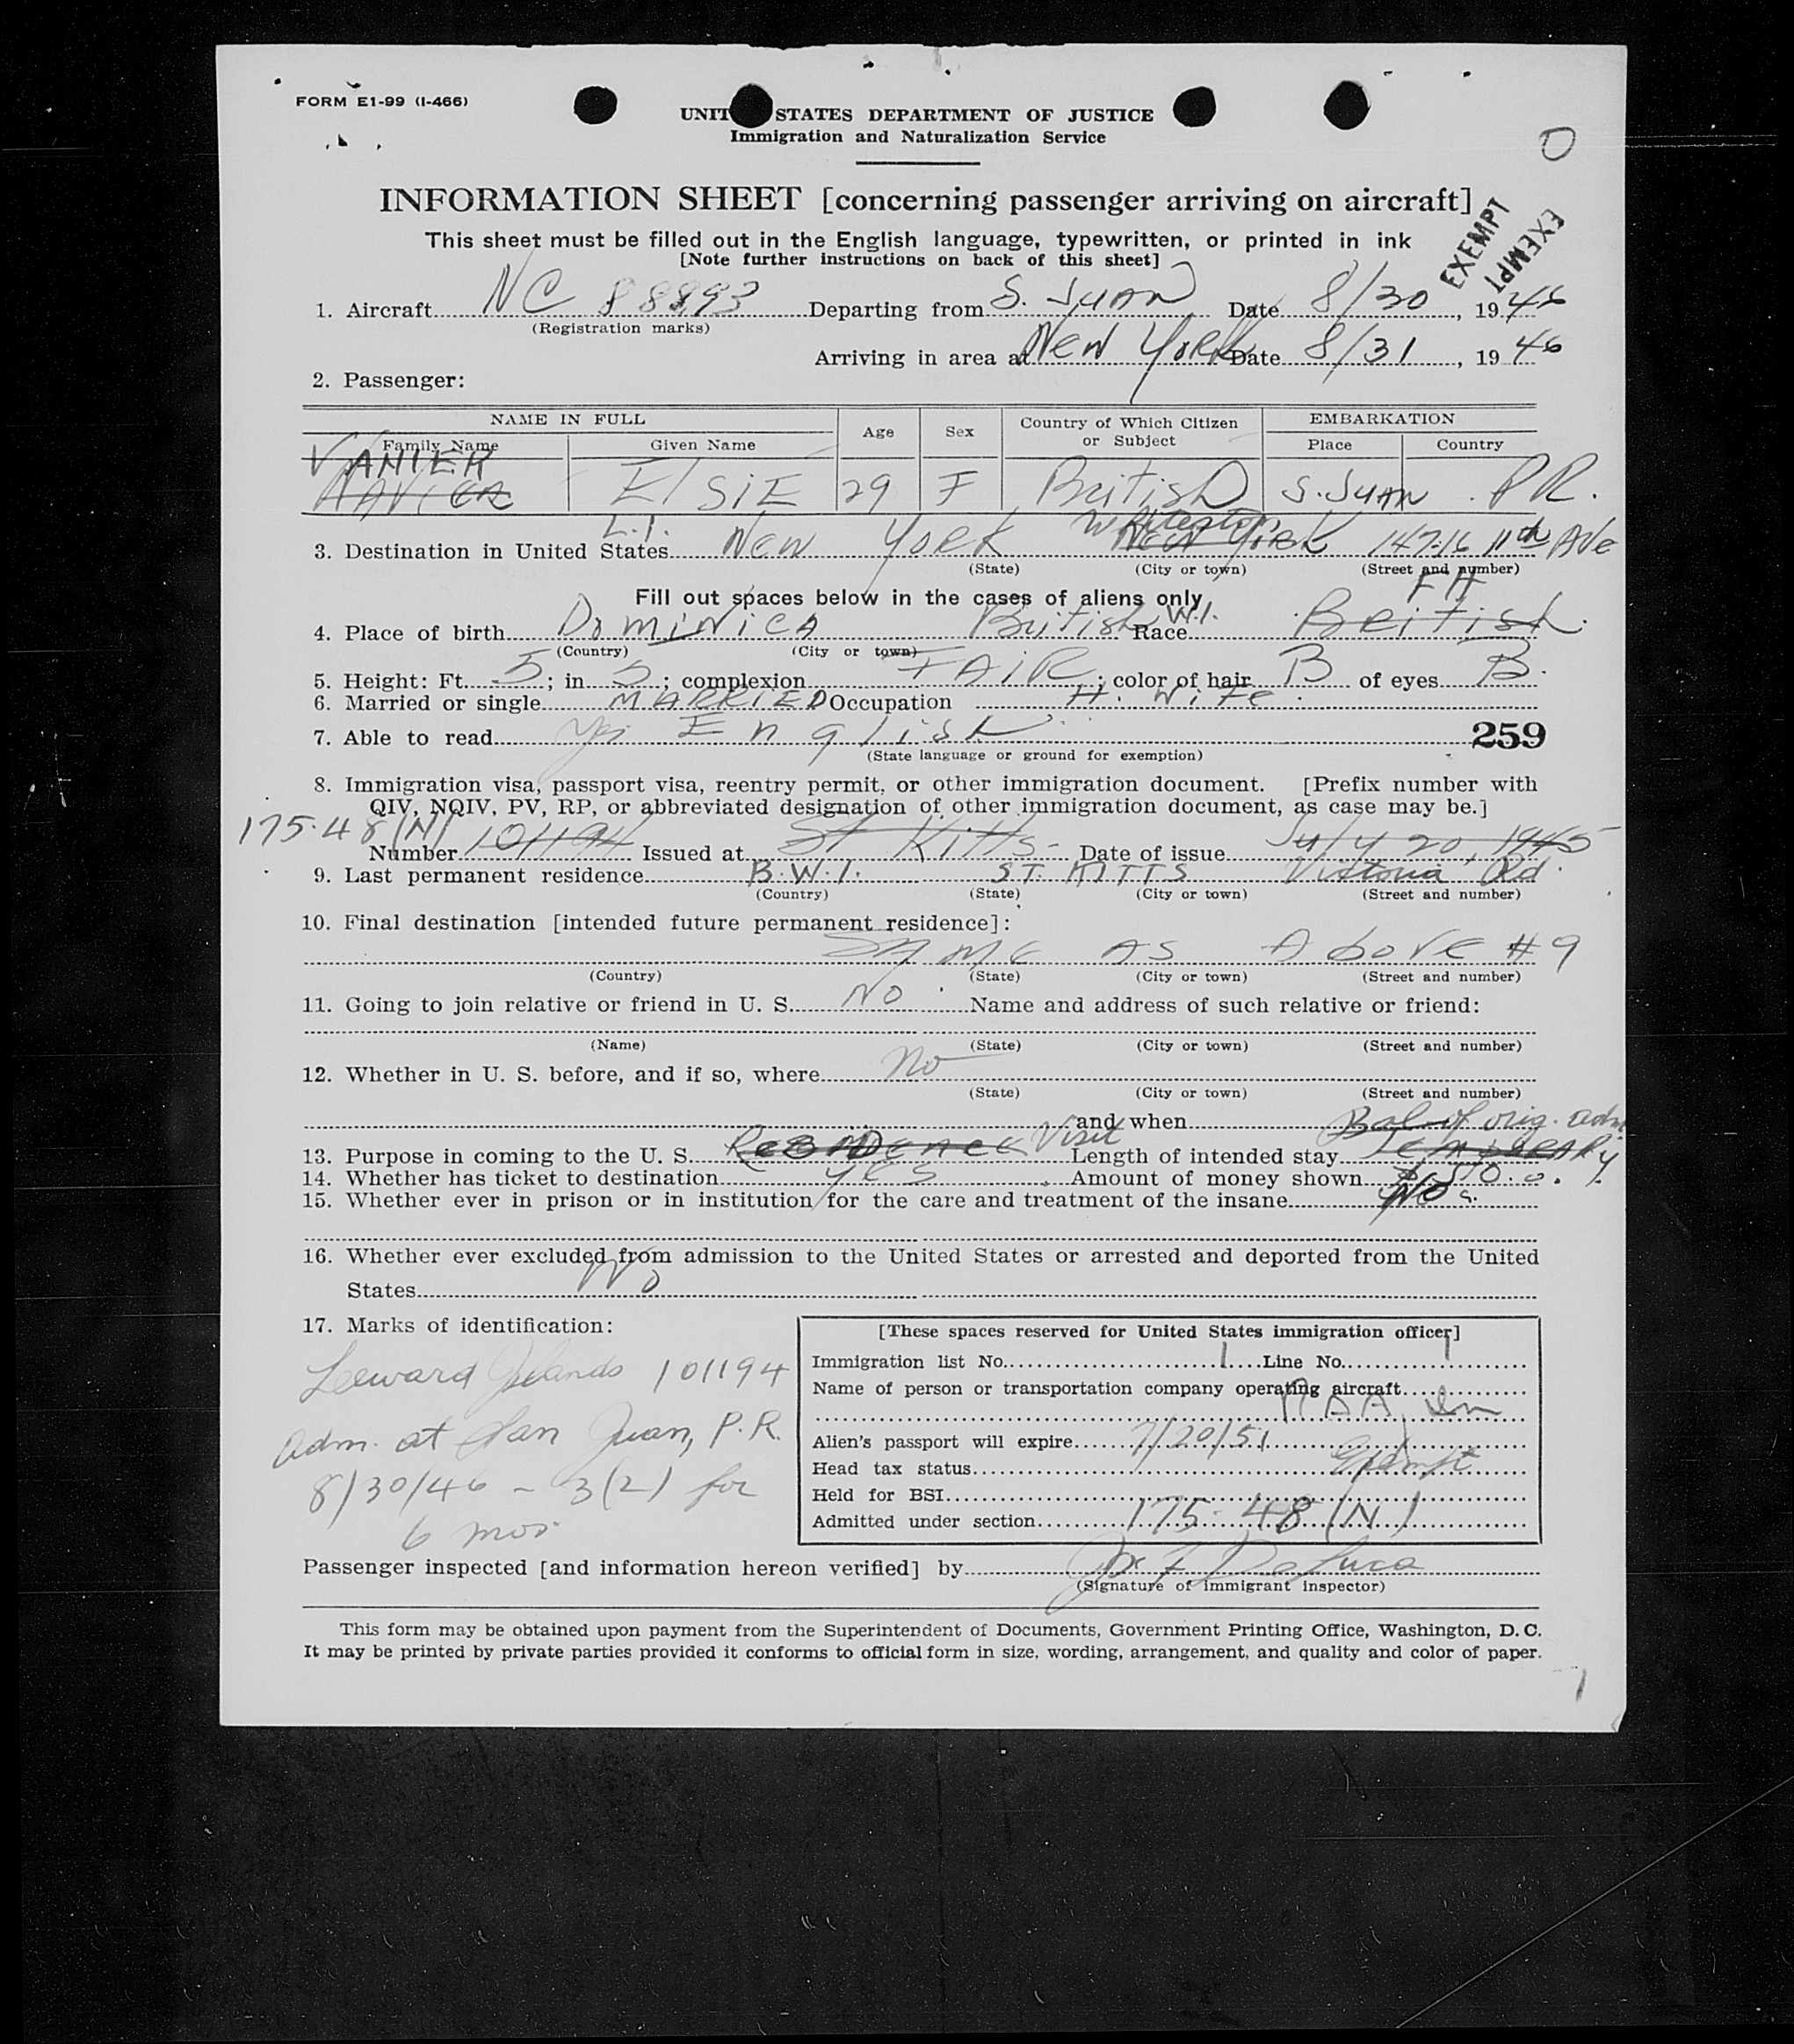 FORM E1-99 (I-466)
UNIT STATES DEPARTMENT OF JUSTICE
Immigration and Naturalization Service
O
INFORMATION SHEET [concerning passenger arriving on aircraft]
EXEMPT EXEMPT
This sheet must be filled out in the English language, typewritten, or printed in ink
[Note further instructions on back of this sheet]
1. Aircraft NC 88893 Departing from S. JUAN Date 8/30, 1946
(Registration marks)
Arriving in area at New York Date 8/31, 1946
2. Passenger:
NAME IN FULL Age Sex Country of Which Citizen or Subject EMBARKATION
Family Name Given Name Place Country
VANIER
ELSIE 29 F British S. JUAN P.R.
L.I. Whitestone
3. Destination in United States New York New York 147-16 11th Ave
(State) (City or town) (Street and number)
Fill out spaces below in the cases of aliens only FH
4. Place of birth Dominica British W.I. Race British
(Country) (City or town)
5. Height: Ft. 5; in 5; complexion FAIR; color of hair B of eyes B.
6. Married or single MARRIED Occupation H. Wife
7. Able to read yes English 259
(State language or ground for exemption)
8. Immigration visa, passport visa, reentry permit, or other immigration document. [Prefix number with
QIV, NQIV, PV, RP, or abbreviated designation of other immigration document, as case may be.]
175.48 (N)
Number 101194 Issued at St Kitts Date of issue July 20, 1945
9. Last permanent residence B.W.I. ST. KITTS Victoria Rd.
(Country) (State) (City or town) (Street and number)
10. Final destination [intended future permanent residence]:
SAME AS Above #9
(Country) (State) (City or town) (Street and number)
11. Going to join relative or friend in U. S. No Name and address of such relative or friend:
(Name) (State) (City or town) (Street and number)
12. Whether in U. S. before, and if so, where No
(State) (City or town) (Street and number)
and when
Bal of orig. adm
13. Purpose in coming to the U. S. Residence Visit Length of intended stay TEMPORARY
14. Whether has ticket to destination yes Amount of money shown
15. Whether ever in prison or in institution for the care and treatment of the insane No
16. Whether ever excluded from admission to the United States or arrested and deported from the United
States No
17. Marks of identification:
Leeward Islands 101194
Adm. at San Juan, P.R.
8/30/46 - 3(2) for
6 mos.
[These spaces reserved for United States immigration officer]
Immigration list No. 1 Line No. 1
Name of person or transportation company operating aircraft
PAA
Alien's passport will expire 7/20/51
Head tax status Exempt
Held for BSI
Admitted under section 175.48 (N)
Passenger inspected [and information hereon verified] by F DeLuca
(Signature of immigrant inspector)
This form may be obtained upon payment from the Superintendent of Documents, Government Printing Office, Washington, D. C.
It may be printed by private parties provided it conforms to official form in size, wording, arrangement, and quality and color of paper.